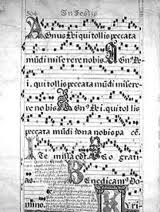 In Festis
Agnus Dei qui tollis peccata
mūdi miserere nobis Agn⁹ de
i, qui tollis peccata mūdi misere
re nobis Agn⁹ Dei, qui tollis
peccata mūdi dona nobis pa cē.
Ite missa est Deo grati
Benedicam⁹ Do
mino.